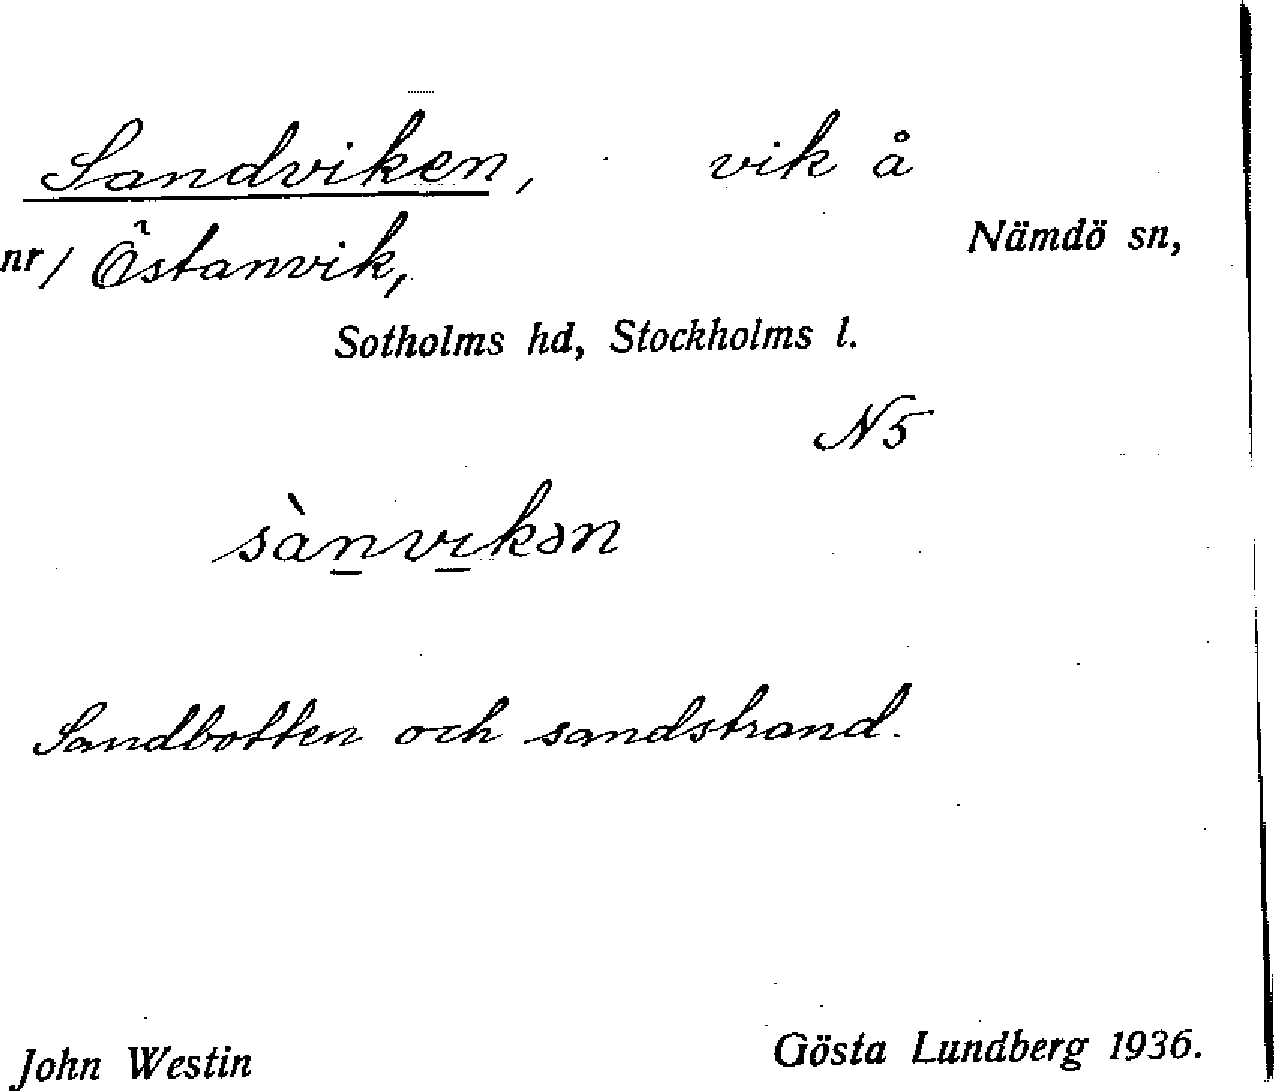 Sandviken, vik å
Nämdö sn,
nr/ Östanvik,
Sotholms hd, Stockholms l.
N5
sànvikən
Sandbotten och sandstrand.
John Westin Gösta Lundberg 1936.